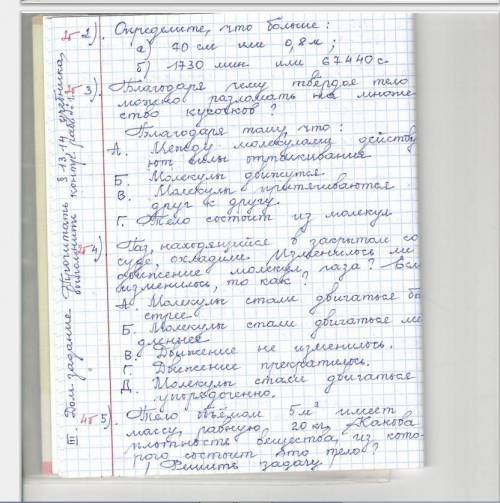 2б 2). Определите, что больше:
а) 70 см или 0,8 м;
б) 1730 мин или 67440 с.
3). Благодаря чему твёрдое тело
можно разломать на множе-
ство кусочков?
Благодаря тому, что:
А. Между молекулами действу
ют силы отталкивания
Б. Молекулы движутся
В. Молекулы притягиваются
друг к другу.
Г. Тело состоит из молекул
2б 4) Газ, находящийся в закрытом со
суде, охладили. Изменилось ли
движение молекул газа? Если
изменилось, то как?
А. Молекулы стали двигаться бы
стрее
Б. Молекулы стали двигаться ме
дленнее
В. Движение не изменилось.
Г. Движение прекратилось.
Д. Молекулы стали двигаться
упорядоченно.
4б 5) Тело объёмом 5 м³ имеет
массу, равную 20 кг. Какова
плотность вещества, из кото-
рого состоит это тело?
Решить задачу
III Дом. задание Прочитать § 13, 14 учебника,
выполнить контр. раб. №1.